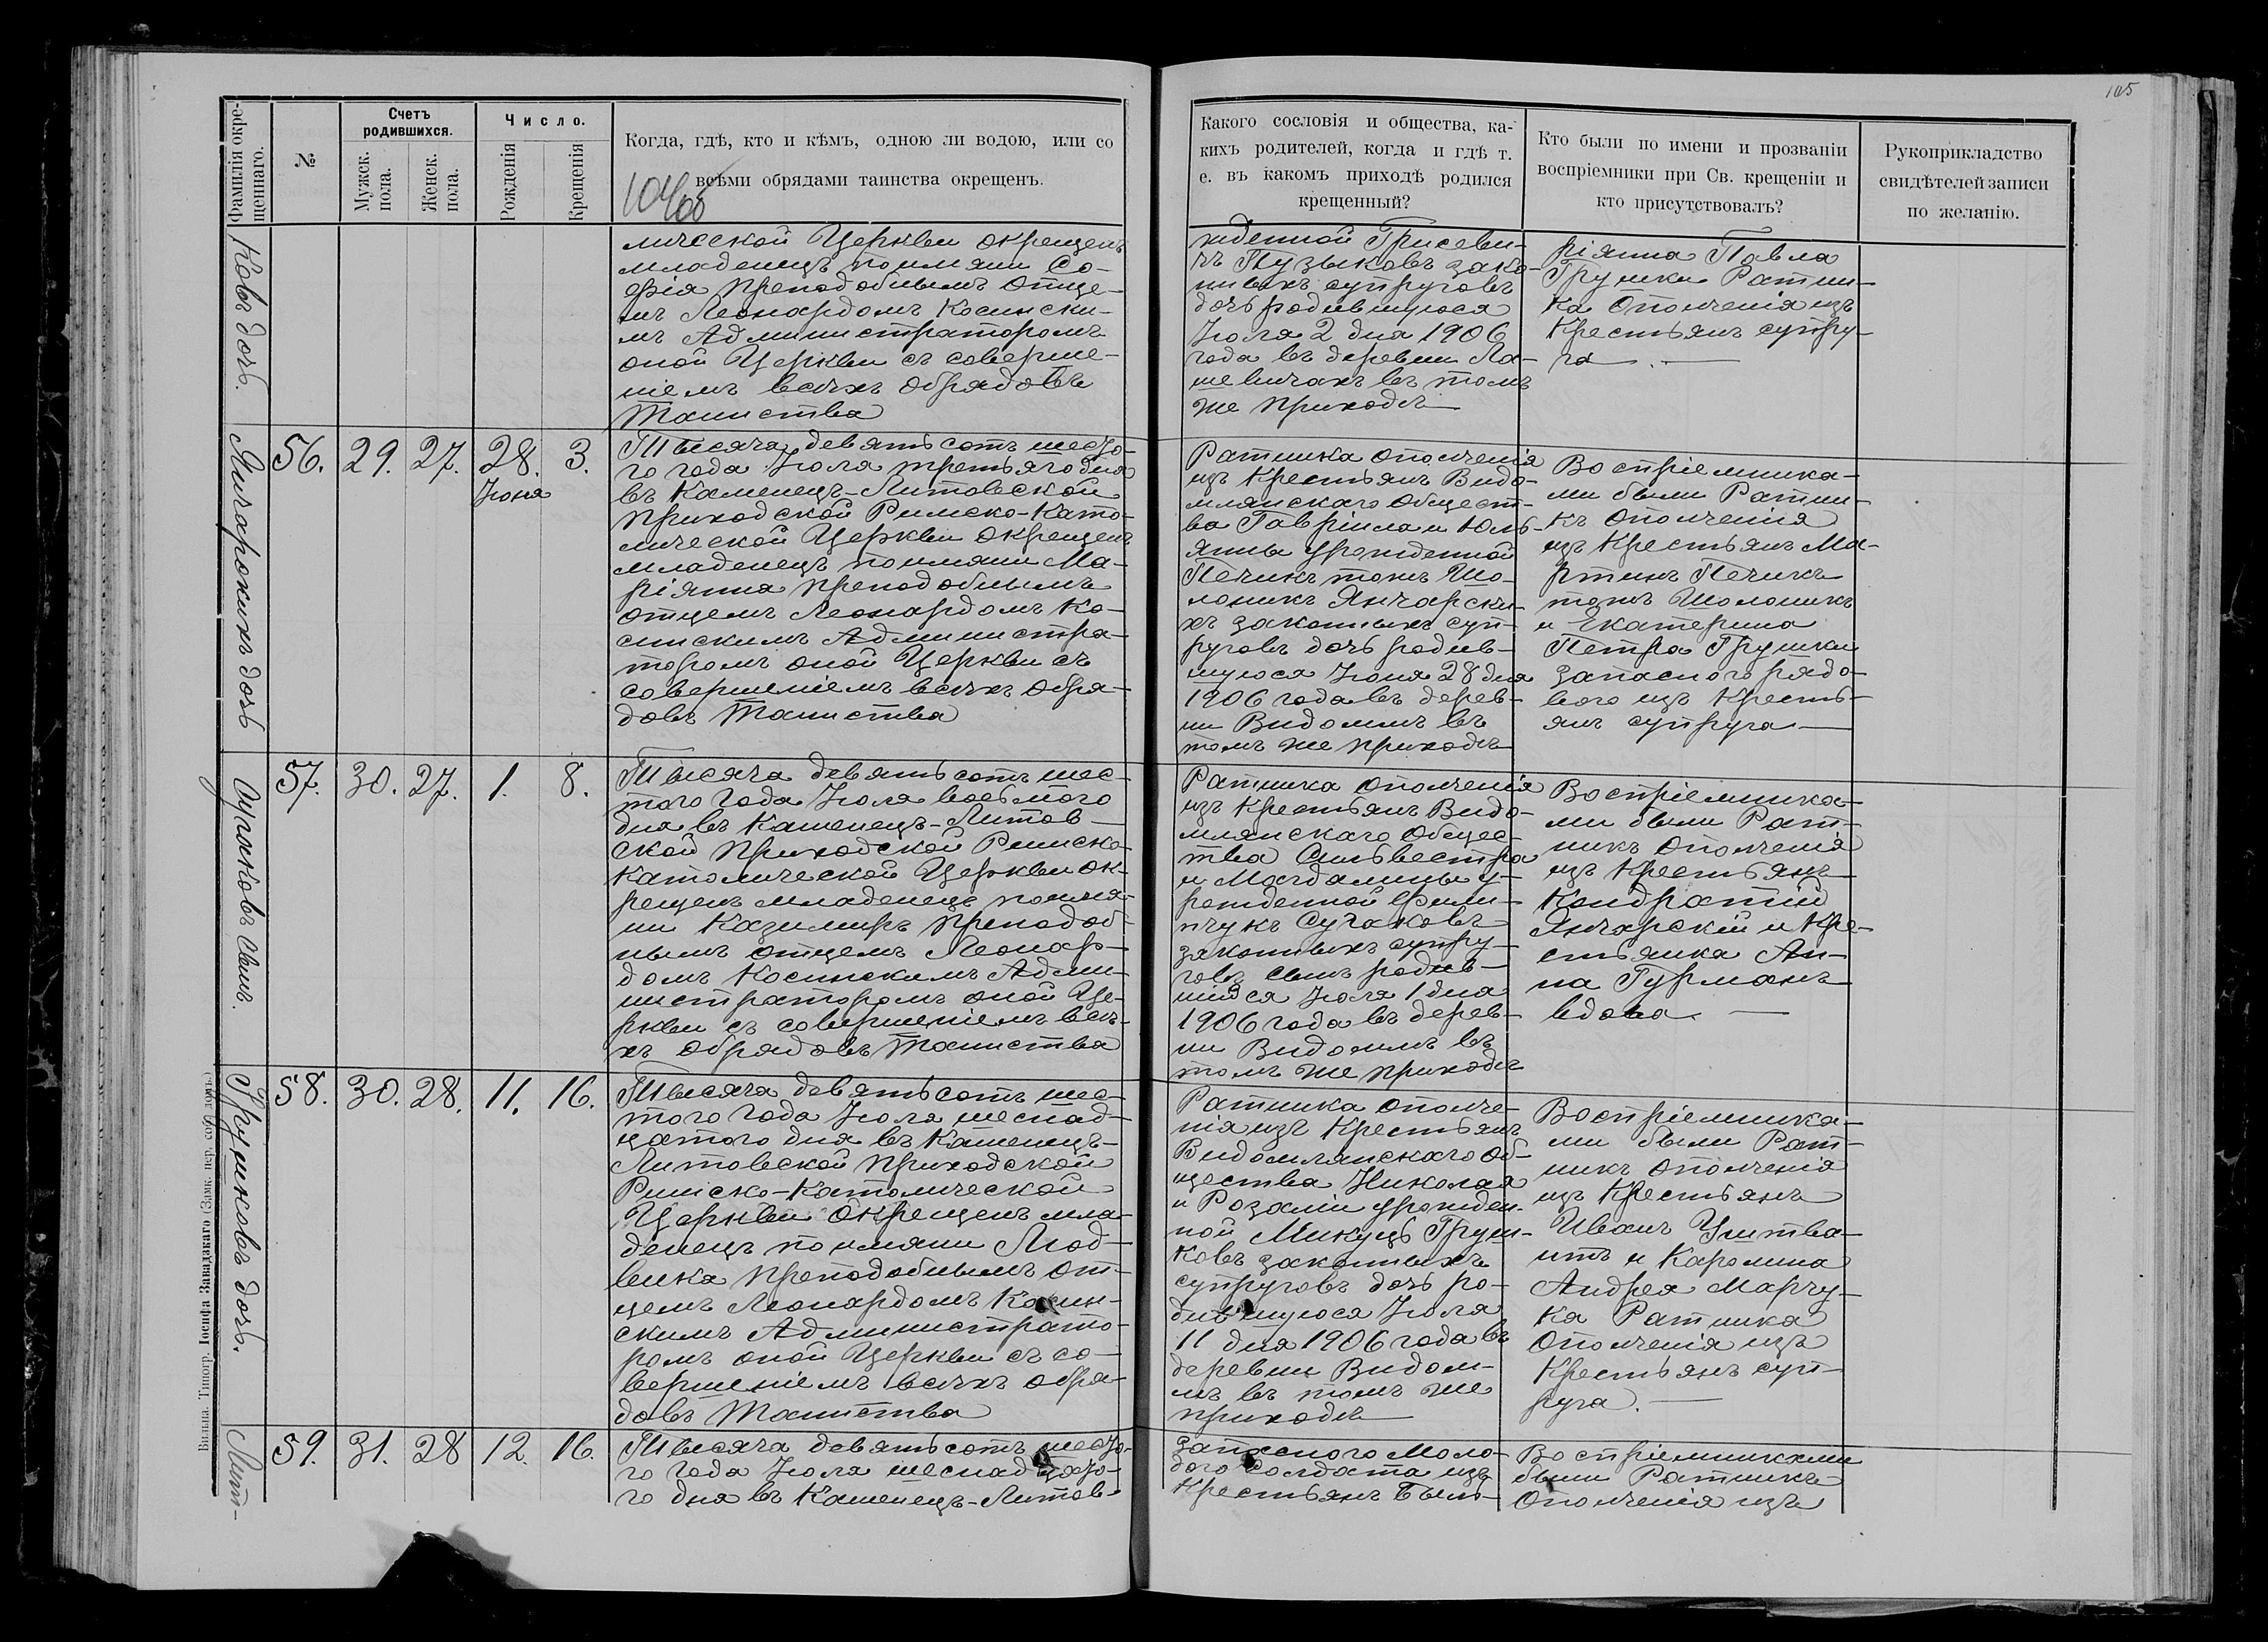 105
Фамилія окре-
щеннаго.
№
Счетъ
родившихся.
Мужск.
пола.
Женск.
пола.
Число.
Рожденія
Крещенія
Когда, гдѣ, кто и кѣмъ, одною ли водою, или со
всѣми обрядами таинства окрещенъ.
Какого сословія и общества, ка-
кихъ родителей, когда и гдѣ т.
е. въ какомъ приходѣ родился
крещенный?
Кто были по имени и прозванію
воспріемники при Св. крещеніи и
кто присутствовалъ?
Рукоприкладство
свидѣтелей записи
по желанію.
ковъ дочь.
лической Церкви окрещенъ
младенецъ поимяни Со-
фія преподобнымъ отце-
мъ Леонардомъ Косински-
мъ Администраторомъ
оной Церкви съ соверше-
ніемъ всѣхъ обрядовъ
Таинства
жденной Грисеви-
чъ Пузыковъ зако-
нныхъ супруговъ
дочь родившуюся
Іюля 2 дня 1906
года въ деревни Ла-
шевичахъ въ томъ
же приходѣ
ріянна Павла
Грушки Ратни-
ка Ополченія изъ
Крестьянъ супру-
га. —
Янчарскихъ дочь
56. 29. 27. 28. 3.
Іюня
Тысяча девятьсотъ шесто-
го года Іюля третьяго дня
въ Каменецъ-Литовской
приходской Римско-Като-
лической Церкви окрещенъ
младенецъ поимяни Ма-
ріянна преподобнымъ
отцемъ Леонардомъ Ко-
синскимъ Администра-
торомъ оной Церкви съ
совершеніемъ всѣхъ обря-
довъ Таинства
Ратника ополченія
изъ Крестьянъ Видо-
млянскаго Общест-
ва Гавріила и Юль-
янны урожденной
Печикъ тожъ Шо-
ломикъ Янчарски-
хъ законныхъ суп-
руговъ дочь родив-
шуюся Іюня 28 дня
1906 года въ дерев-
ни Видомлѣ въ
томъ же приходѣ
Воспріемника-
ми были Ратни-
къ Ополченія
изъ Крестьянъ Ма-
ртинъ Печикъ
тожъ Шоломикъ
и Екатерина
Петра Грушки
запаснаго рядо-
вого изъ Кресть-
янъ супруга —
Сугаковъ сынъ.
57. 30. 27. 1. 8.
Тысяча девятьсотъ шес-
того года Іюля восьмого
дня въ Каменецъ-Литов-
ской приходской Римско-
Католической Церкви ок-
рещенъ младенецъ поимя-
ни Казимиръ преподоб-
нымъ отцемъ Леонар-
домъ Косинскимъ Адми-
нистраторомъ оной Це-
ркви съ совершеніемъ всѣ-
хъ обрядовъ Таинства
Ратника ополченія
изъ Крестьянъ Видо-
млянскаго Общес-
тва Сильвестра
и Магдалины у-
рожденной Фили-
пчукъ Сугаковъ
законныхъ супру-
говъ сынъ родив-
шійся Іюля 1 дня
1906 года въ дерев-
ни Видомлѣ въ
томъ же приходѣ
Воспріемника-
ми были Рат-
никъ Ополченія
изъ Крестьянъ
Кондратій
Янчарскій и Кре-
стьянка Ан-
на Гурманъ
вдова. —
Грушковъ дочь.
58. 30. 28. 11. 16.
Тысяча девятьсотъ шес-
того года Іюля шеснад-
цатого дня въ Каменецъ-
Литовской приходской
Римско-Католической
Церкви окрещенъ мла-
денецъ поимяни Люд-
вика преподобнымъ от-
цемъ Леонардомъ Косин-
скимъ Администрато-
ромъ оной Церкви съ со-
вершеніемъ всѣхъ обря-
довъ Таинства
Ратника ополче-
нія изъ Крестьянъ
Видомлянскаго Об-
щества Николая
и Розаліи урожден-
ной Микуць Груш-
ковъ законныхъ
супруговъ дочь ро-
дившуюся Іюля
11 дня 1906 года въ
деревни Видом-
лѣ въ томъ же
приходѣ
Воспріемника-
ми были Рат-
никъ Ополченія
изъ Крестьянъ
Иванъ
и Каролина
Андрея Марчу-
ка Ратника
Ополченія изъ
Крестьянъ суп-
руга. —
Лит-
59. 31. 28 12. 16.
Тысяча девятьсотъ шесто-
го года Іюля шеснадцато-
го дня въ Каменецъ-Литов-
запаснаго Моло-
дого солдата изъ
Крестьянъ Бѣль-
Воспріемниками
были Ратникъ
Ополченія изъ
Вильна. Типогр. Іосифа Завадзкаго (Замк. пер. соб. домъ.)